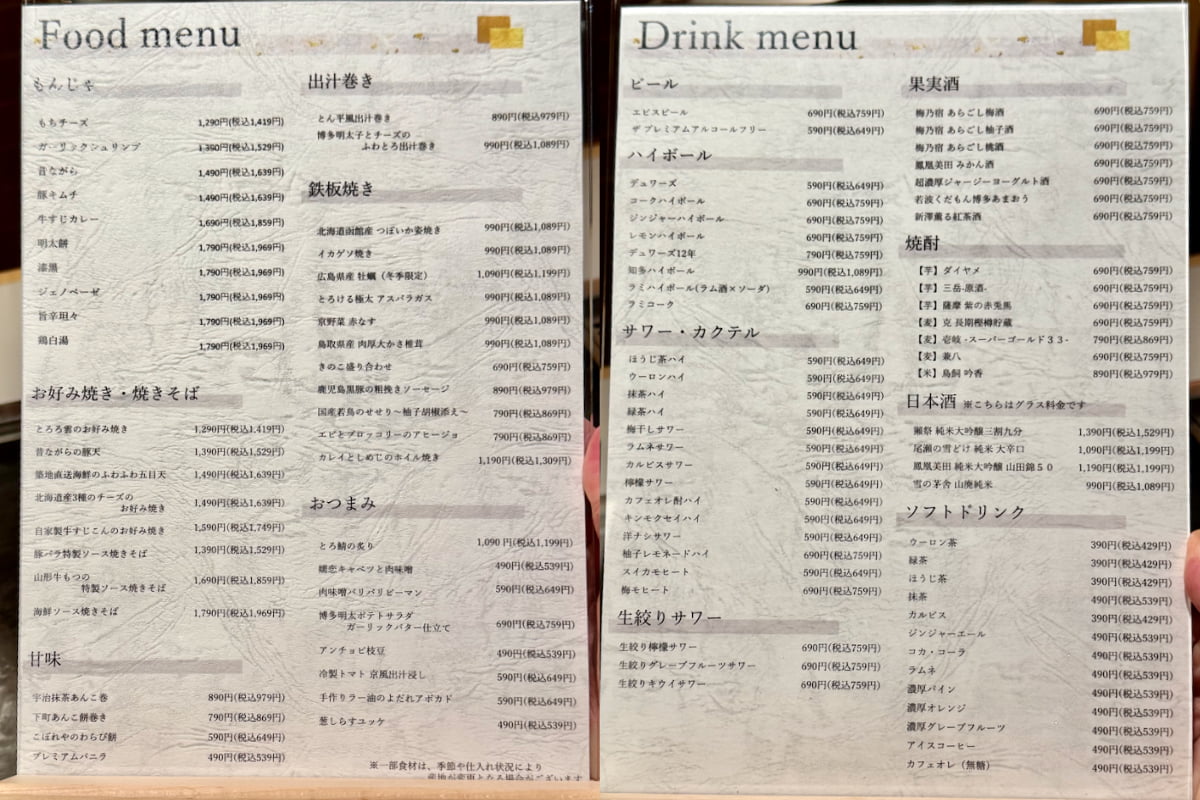 Food menu
もんじゃ
もちチーズ 1,290円(税込1,419円)
ガーリックシュリンプ 1,390円(税込1,529円)
昔ながら 1,490円(税込1,639円)
豚キムチ 1,490円(税込1,639円)
牛すじカレー 1,690円(税込1,859円)
明太餅 1,790円(税込1,969円)
漆黒 1,790円(税込1,969円)
ジェノベーゼ 1,790円(税込1,969円)
旨辛坦々 1,790円(税込1,969円)
鶏白湯 1,790円(税込1,969円)
お好み焼き・焼きそば
とろろ雲のお好み焼き 1,290円(税込1,419円)
昔ながらの豚天 1,390円(税込1,529円)
築地直送海鮮のふわふわ五目天 1,490円(税込1,639円)
北海道産3種のチーズの
お好み焼き 1,490円(税込1,639円)
自家製牛すじこんのお好み焼き 1,590円(税込1,749円)
豚バラ特製ソース焼きそば 1,390円(税込1,529円)
山形牛もつの
特製ソース焼きそば 1,690円(税込1,859円)
海鮮ソース焼きそば 1,790円(税込1,969円)
甘味
宇治抹茶あんこ巻 890円(税込979円)
下町あんこ餅巻き 790円(税込869円)
こぼれやのわらび餅 590円(税込649円)
プレミアムバニラ 490円(税込539円)
出汁巻き
とん平風出汁巻き 890円(税込979円)
博多明太子とチーズの
ふわとろ出汁巻き 990円(税込1,089円)
鉄板焼き
北海道函館産 つぼいか姿焼き 990円(税込1,089円)
イカゲソ焼き 990円(税込1,089円)
広島県産 牡蠣（冬季限定） 1,090円(税込1,199円)
とろける極太 アスパラガス 990円(税込1,089円)
京野菜 赤なす 990円(税込1,089円)
鳥取県産 肉厚大かさ椎茸 990円(税込1,089円)
きのこ盛り合わせ 690円(税込759円)
鹿児島黒豚の粗挽きソーセージ 890円(税込979円)
国産若鳥のせせり〜柚子胡椒添え〜 790円(税込869円)
エビとブロッコリーのアヒージョ 790円(税込869円)
カレイとしめじのホイル焼き 1,190円(税込1,309円)
おつまみ
とろ鯖の炙り 1,090円(税込1,199円)
嬬恋キャベツと肉味噌 490円(税込539円)
肉味噌バリバリピーマン 590円(税込649円)
博多明太ポテトサラダ
ガーリックバター仕立て 690円(税込759円)
アンチョビ枝豆 490円(税込539円)
冷製トマト 京風出汁浸し 590円(税込649円)
手作りラー油のよだれアボカド 590円(税込649円)
葱しらすユッケ 490円(税込539円)
※一部食材は、季節や仕入れ状況により
産地が変更となる場合がございます
Drink menu
ビール
エビスビール 690円(税込759円)
ザ プレミアムアルコールフリー 590円(税込649円)
ハイボール
デュワーズ 590円(税込649円)
コークハイボール 690円(税込759円)
ジンジャーハイボール 690円(税込759円)
レモンハイボール 690円(税込759円)
デュワーズ12年 790円(税込759円)
知多ハイボール 990円(税込1,089円)
ラミハイボール(ラム酒×ソーダ) 590円(税込649円)
ラミコーク 690円(税込759円)
サワー・カクテル
ほうじ茶ハイ 590円(税込649円)
ウーロンハイ 590円(税込649円)
抹茶ハイ 590円(税込649円)
緑茶ハイ 590円(税込649円)
梅干しサワー 590円(税込649円)
ラムネサワー 590円(税込649円)
カルピスサワー 590円(税込649円)
檸檬サワー 590円(税込649円)
カフェオレ酎ハイ 590円(税込649円)
キンモクセイハイ 590円(税込649円)
洋ナシサワー 590円(税込649円)
柚子レモネードハイ 690円(税込759円)
スイカモヒート 590円(税込649円)
梅モヒート 690円(税込759円)
生絞りサワー
生絞り檸檬サワー 690円(税込759円)
生絞りグレープフルーツサワー 690円(税込759円)
生絞りキウイサワー 690円(税込759円)
果実酒
梅乃宿 あらごし梅酒 690円(税込759円)
梅乃宿 あらごし柚子酒 690円(税込759円)
梅乃宿 あらごし桃酒 690円(税込759円)
鳳凰美田 みかん酒 690円(税込759円)
超濃厚ジャージーヨーグルト酒 690円(税込759円)
若波くだもん博多あまおう 690円(税込759円)
新澤薫る紅茶酒 690円(税込759円)
焼酎
【芋】ダイヤメ 690円(税込759円)
【芋】三岳-原酒- 690円(税込759円)
【芋】薩摩 紫の赤兎馬 690円(税込759円)
【麦】克 長期樫樽貯蔵 690円(税込759円)
【麦】壱岐 -スーパーゴールド３３- 790円(税込869円)
【麦】兼八 690円(税込759円)
【米】鳥飼 吟香 890円(税込979円)
日本酒 ※こちらはグラス料金です
獺祭 純米大吟醸三割九分 1,390円(税込1,529円)
尾瀬の雪どけ 純米 大辛口 1,090円(税込1,199円)
鳳凰美田 純米大吟醸 山田錦５０ 1,190円(税込1,199円)
雪の茅舎 山廃純米 990円(税込1,089円)
ソフトドリンク
ウーロン茶 390円(税込429円)
緑茶 390円(税込429円)
ほうじ茶 390円(税込429円)
抹茶 490円(税込539円)
カルピス 390円(税込429円)
ジンジャーエール 490円(税込539円)
コカ・コーラ 490円(税込539円)
ラムネ 490円(税込539円)
濃厚パイン 490円(税込539円)
濃厚オレンジ 490円(税込539円)
濃厚グレープフルーツ 490円(税込539円)
アイスコーヒー 490円(税込539円)
カフェオレ（無糖） 490円(税込539円)